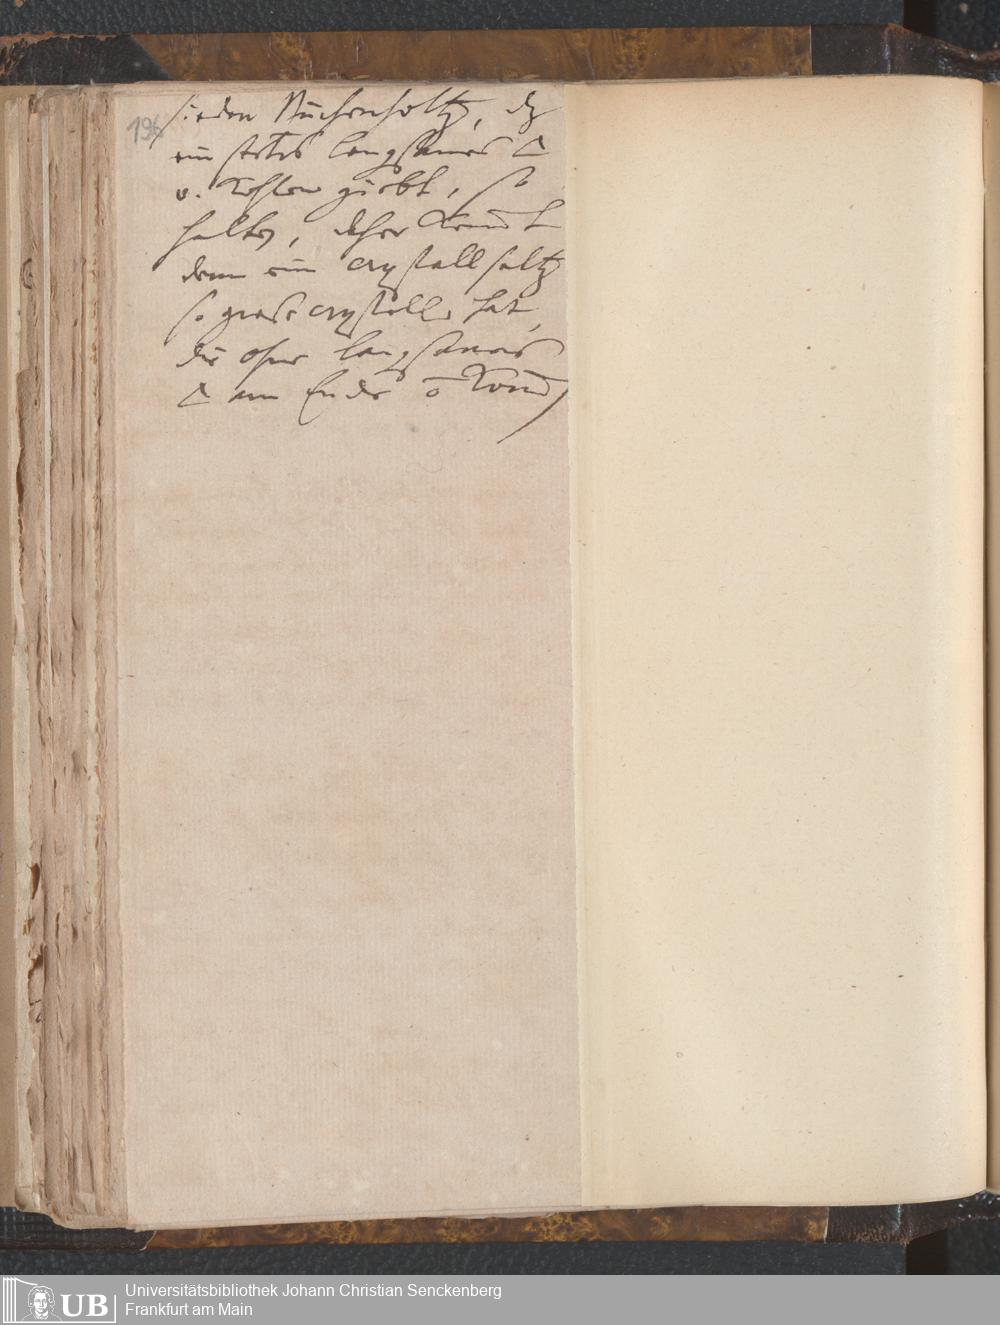 196
sieden Buchenholtz, dz
ein stetes langsames △
v. Kohlen giebt, so
halten, daher komt
denn ein crystall saltz
so große crystalle hat,
die ohne langsames
△ am Ende ō kom̄
UB
Universitätsbibliothek Johann Christian Senckenberg
Frankfurt am Main